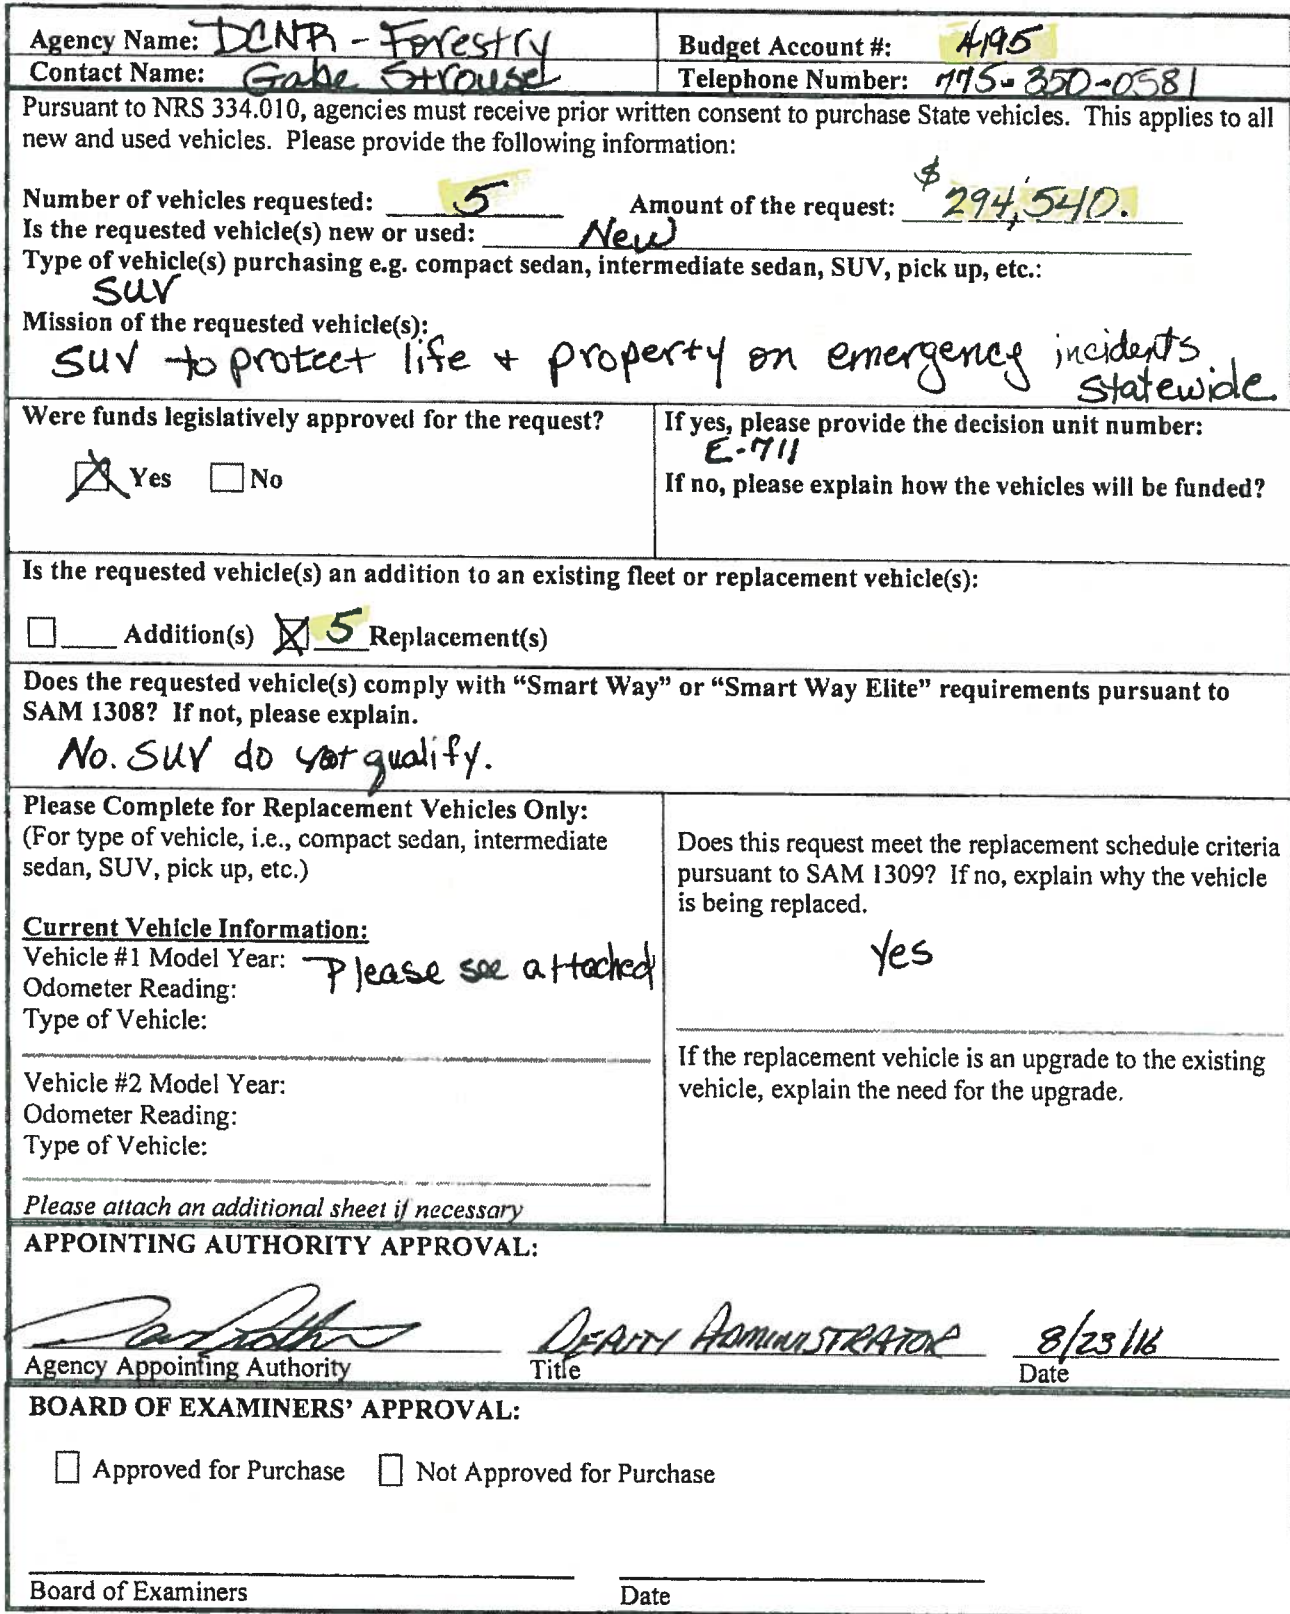 Agency Name: DCNR - Forestry
Budget Account #: 4195
Contact Name: Gabe Strousel
Telephone Number: 775-350-0581
Pursuant to NRS 334.010, agencies must receive prior written consent to purchase State vehicles. This applies to all
new and used vehicles. Please provide the following information:
Number of vehicles requested: 5 Amount of the request: $294,540.
Is the requested vehicle(s) new or used: New
Type of vehicle(s) purchasing e.g. compact sedan, intermediate sedan, SUV, pick up, etc.:
SUV
Mission of the requested vehicle(s):
SUV to protect life + property on emergency incidents
statewide
Were funds legislatively approved for the request?
☒ Yes ☐ No
If yes, please provide the decision unit number:
E-711
If no, please explain how the vehicles will be funded?
Is the requested vehicle(s) an addition to an existing fleet or replacement vehicle(s):
☐ ____ Addition(s) ☒ 5 Replacement(s)
Does the requested vehicle(s) comply with “Smart Way” or “Smart Way Elite” requirements pursuant to
SAM 1308? If not, please explain.
No. SUV do not qualify.
Please Complete for Replacement Vehicles Only:
(For type of vehicle, i.e., compact sedan, intermediate
sedan, SUV, pick up, etc.)
Current Vehicle Information:
Vehicle #1 Model Year: Please see attached
Odometer Reading:
Type of Vehicle:
Vehicle #2 Model Year:
Odometer Reading:
Type of Vehicle:
Please attach an additional sheet if necessary
Does this request meet the replacement schedule criteria
pursuant to SAM 1309? If no, explain why the vehicle
is being replaced.
Yes
If the replacement vehicle is an upgrade to the existing
vehicle, explain the need for the upgrade.
APPOINTING AUTHORITY APPROVAL:
DEPUTY ADMINISTRATOR 8/23/16
Agency Appointing Authority Title Date
BOARD OF EXAMINERS’ APPROVAL:
☐ Approved for Purchase ☐ Not Approved for Purchase
Board of Examiners Date